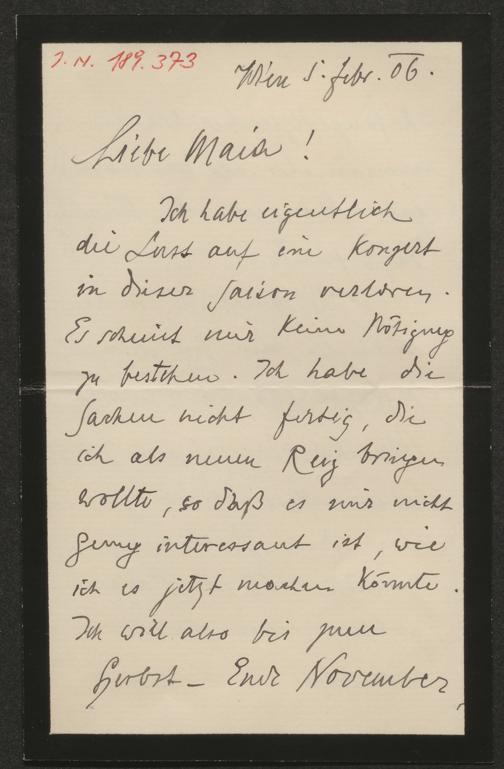 J. N. 189.373
Wien 5. Febr. 06.
Liebe Maia!
Ich habe eigentlich
die Lust auf ein Konzert
in dieser Saison verloren.
Es scheint mir keine Nötigung
zu bestehen. Ich habe die
Sachen nicht fertig, die
ich als neuen Reiz bringen
wollte, so daß es mir nicht
genug interessant ist, wie
ich es jetzt machen könnte.
Ich will also bis zum
Herbst – Ende November,